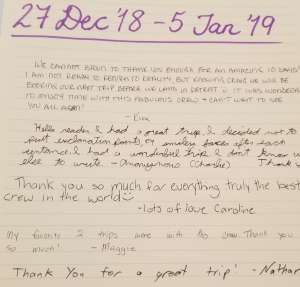 27 Dec '18 - 5 Jan '19
WE CANNOT BEGIN TO THANK YOU ENOUGH FOR AN AMAZING 10 DAYS!
I AM NOT READY TO RETURN TO REALITY BUT KNOWING CREW WE WILL BE
BOOKING OUR NEXT TRIP BEFORE WE LAND IN DETROIT IT WAS WONDERFUL
TO ENJOY TIME WITH THIS FABULOUS CREW + CAN'T WANT TO SEE
YOU ALL AGAIN!
Hello reader, I had a great trip. I decided not to
put exclamation points or smiley faces after each
sentence. I had a wonderful trip. I don't know what
else to write. - Anonymous (Charlie) Thank
Thank you so much for everything truly the best
crew in the world
- Lots of love Caroline
My favorite 2 trips were with this crew. Thank you
so much! - Maggie
Thank You for a great trip! - Nathan